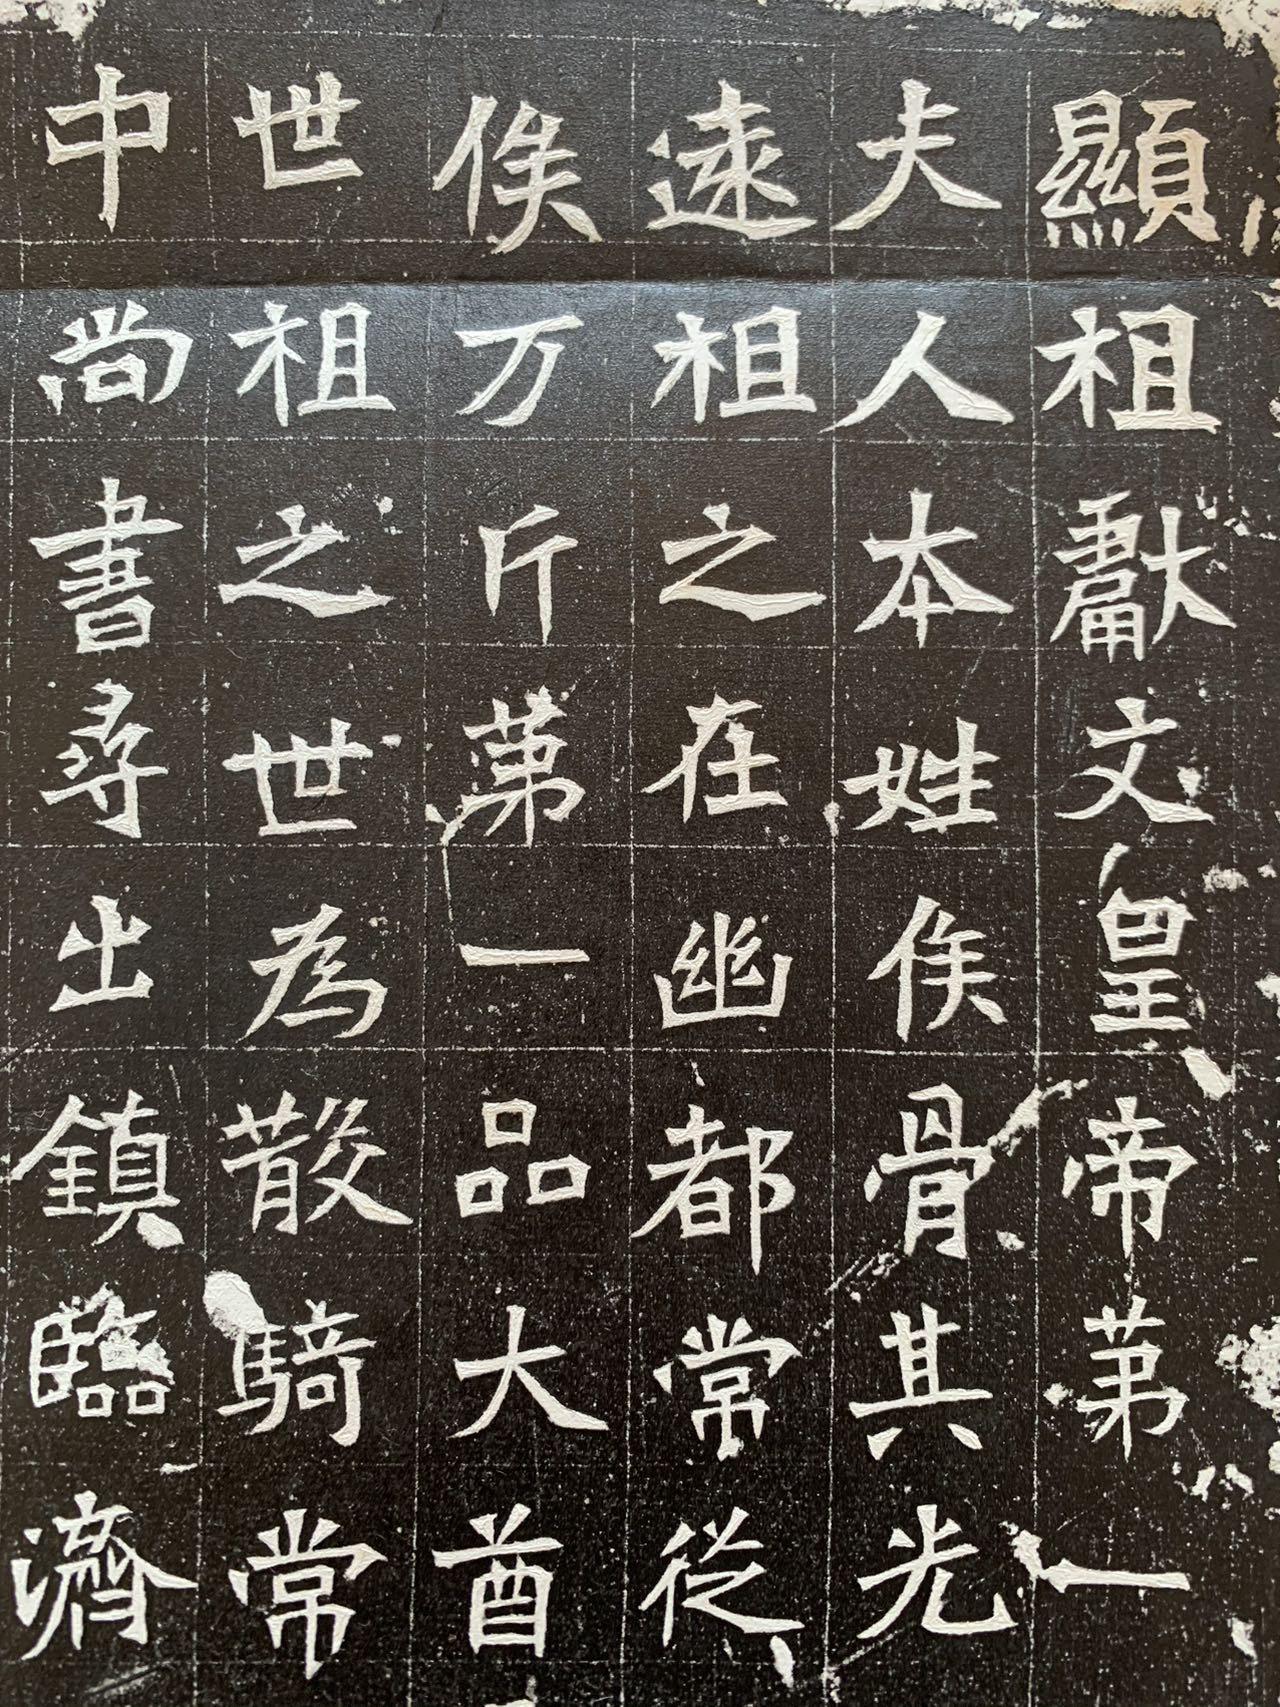 顯祖獻文皇帝第一
夫人本姓侯骨其光
遠祖之在幽都常從
侯万斤第一品大酋
世祖之世為散騎常
中尚書尋出鎮臨濟